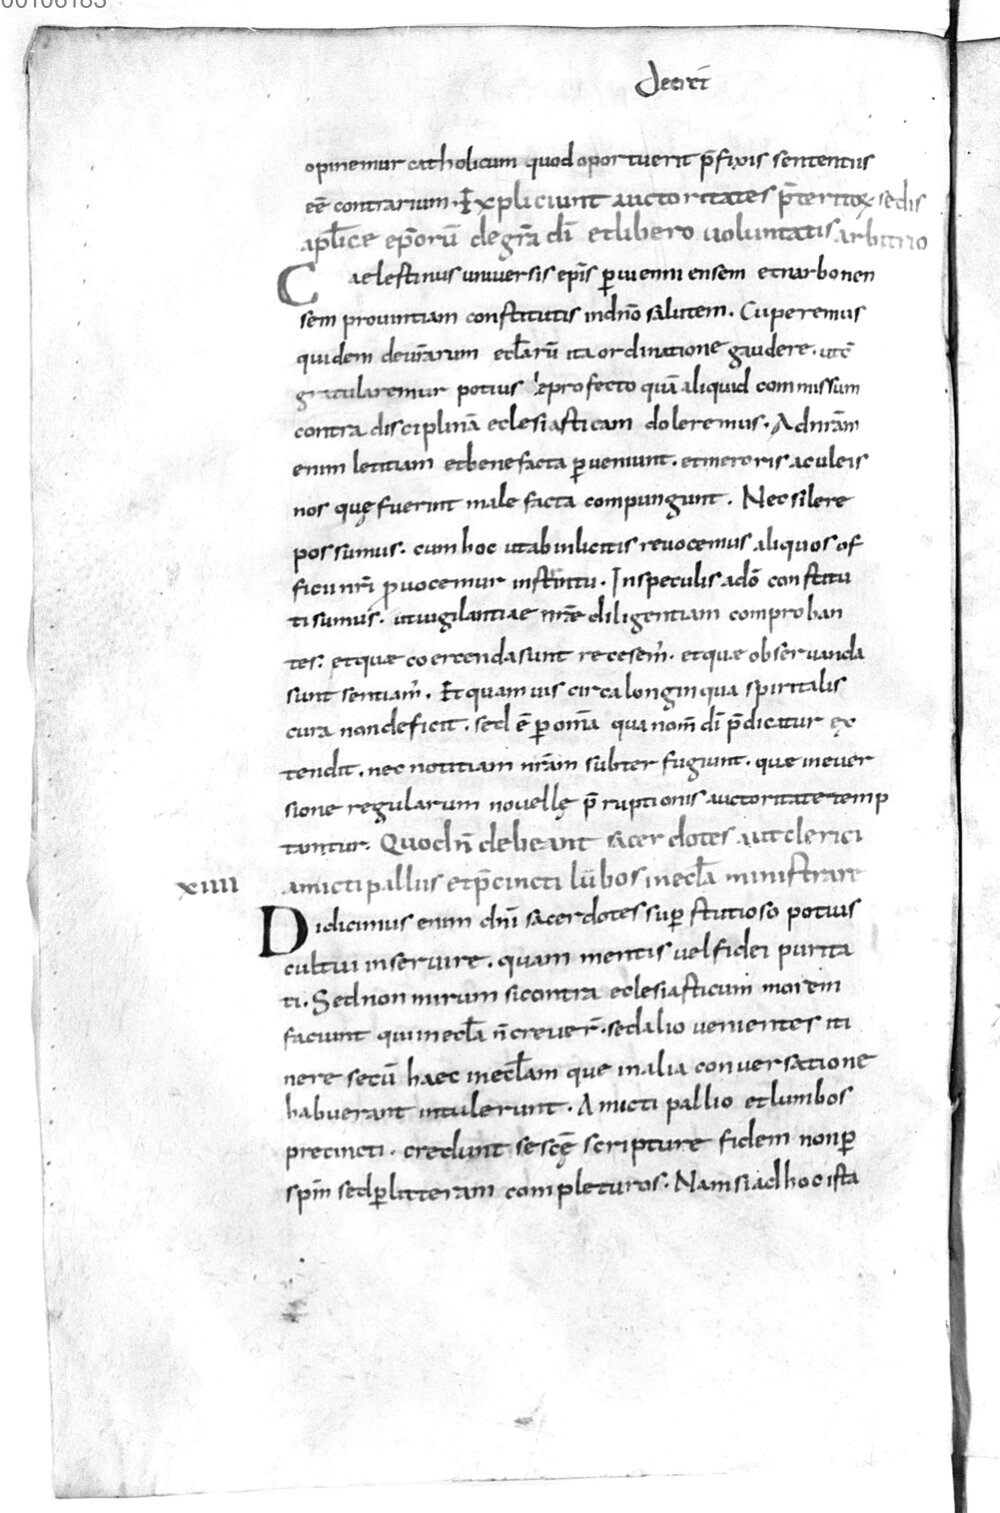 00106183
decreti
opinemur catholicum quod oportuerit p̄fixis sententiis
eē contrarium. Expliciunt auctoritates p̄teritoꝝ sedis
apl̄ice ep̄orū de gr̄a dī et libero uoluntatis arbitrio
Caelestinus uniuersis ep̄is ꝑ uiennensem et narbonen
sem prouintiam constitutis in dn̄o salutem. Cuperemus
quidem de ur̄arum eccl̄arū ita ordinatione gaudere. ut
gratularemur potius profecto quā aliquid commissum
contra disciplinā eclesiasticam doleremus. Ad nr̄am
enim letitiam et benefacta ꝑueniunt. et meroris aculeis
nos quę fuerint male facta compungunt. Nec silere
possumus. cum hoc ut ab inlicitis reuocemus aliquos of
ficii nr̄i p̱uocemur instinctu. In speculis a dō constitu
ti sumus. ut uigilantiae nr̄ae diligentiam comproban
tes. et que coercenda sunt recesem̄. et quae obseruanda
sunt sentiam̄. Et quamuis circa longinqua spiritalis
cura non deficit. sed ē ꝑ om̄ia qua nom̄ dī p̄dicatur ex
tendit. nec notitiam nr̄am subterfugiunt. quae in euer
sione regularum nouellę p̄ruptionis auctoritate temp
tantur. Quod n̄ debeant sacerdotes aut clerici
xiiii amicti palliis et p̄cincti lūbos in eccl̄a ministrare
Didicimus enim dn̄i sacerdotes suꝑstitioso potius
cultui inseruire. quam mentis uel fidei purita
ti. Sed non mirum si contra eclesiasticum morem
faciunt qui in eccl̄a n̄ creuer̄. sed alio uenientes iti
nere secū haec in eccl̄am que in alia conuersatione
habuerant intulerunt. Amicti pallio et lumbos
precincti. credunt se scę̄ scripture fidem non ꝑ
sp̄m sed ꝑ litteram completuros. Nam si ad hoc ista